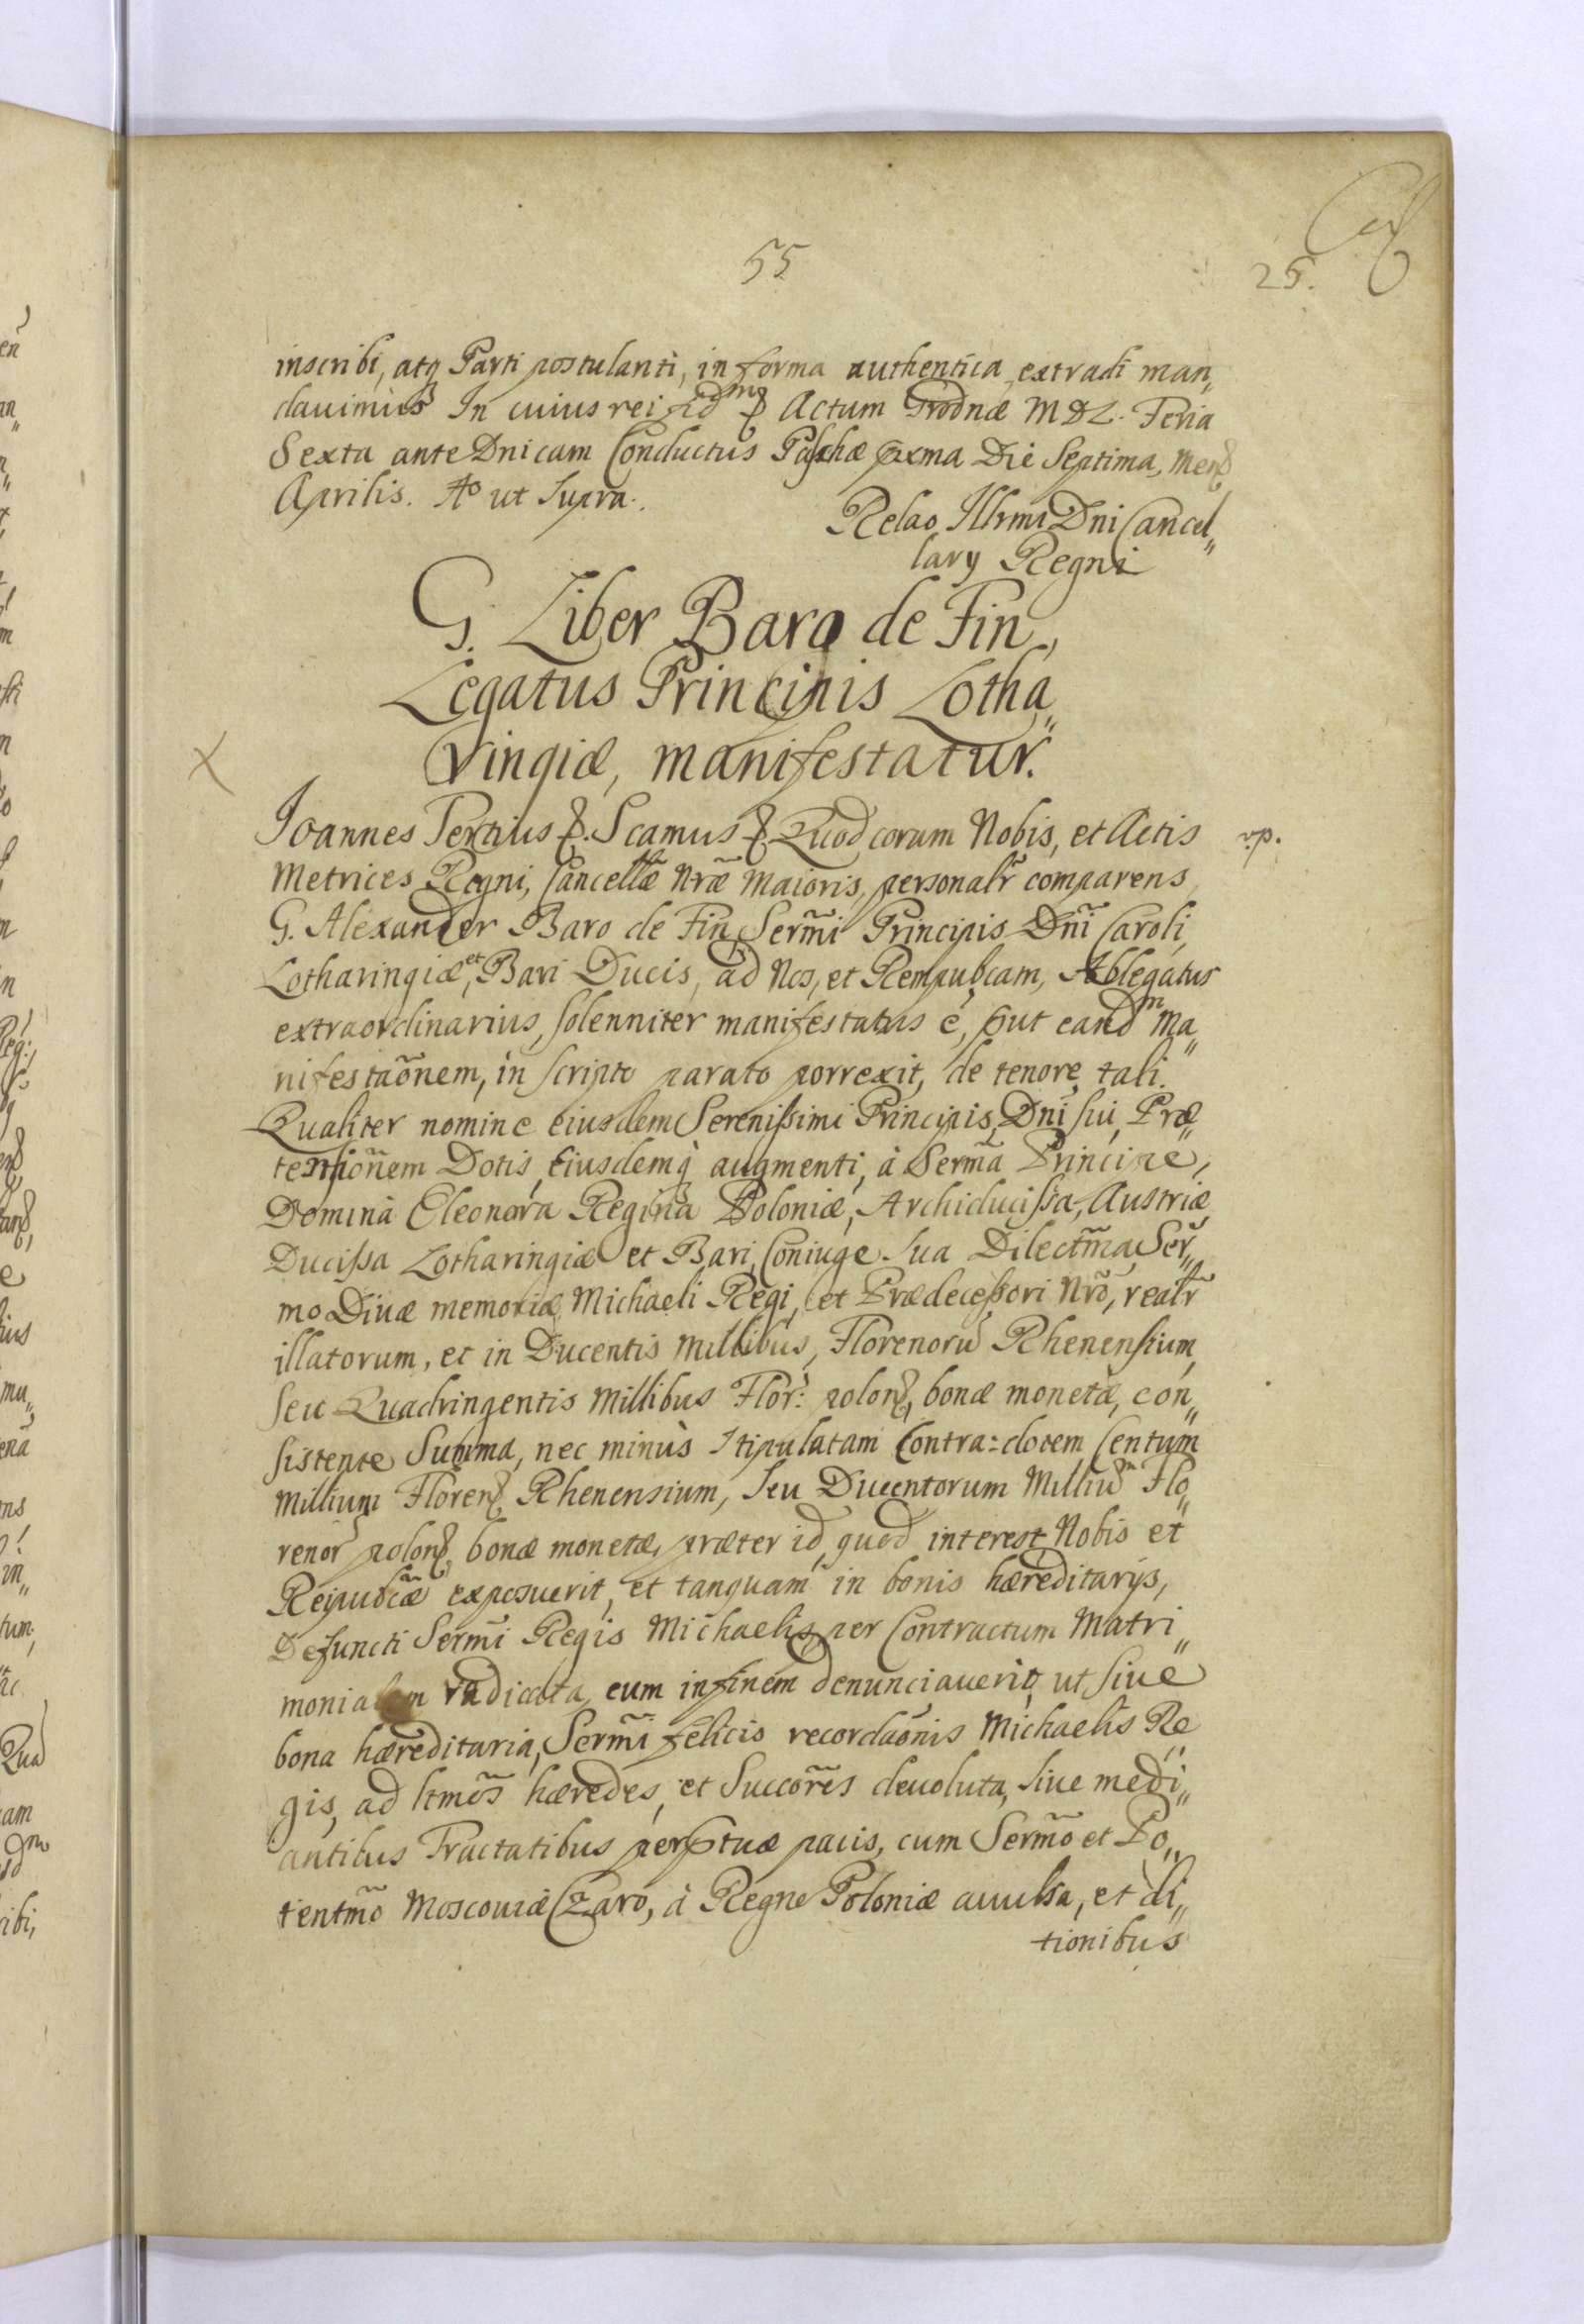 55
25.
inscribi, atq Parti postulanti, in forma authentica extradi man„
davimus In cuius rei fidm &. Actum Grodnæ MDL. Feria
Sexta ante Dnicam Conductus Paschæ pxma Die Septima, Mens
Aprilis. Ao ut Supra.
Relao Illrmi Dni Cancel„
lary Regni
G. Liber Baro de Fin,
Legatus Principis Lotha„
ringiæ, manifestatur.
X
Joannes Tertius &. Scamus &. Quod coram Nobis, et Actis
vp.
Metrices Regni, Cancellæ Nræ Maioris, personalr comparens
G. Alexander Baro de Fin, Sermi Principis Dni Caroli,
Lotharingiæ, et Bari Ducis, ad Nos, et Rempubcam, Ablegatus
extraordinarius, solenniter manifestatus ē, put eandm Ma„
nifestaõnem, in scripto parato porrexit, de tenore tali.
Qualiter nomine eiusdem Serenissimi Principis, Dni sui, Præ„
tensionem Dotis, Eiusdemq augmenti, à Serma Principe,
Domina Eleonora Regina Poloniæ, Archiducissa, Austriæ
Ducissa Lotharingiæ et Bari, Coniuge sua Dilectma, Ser„
mo Divæ memoriæ Michaeli Regi, et Prædecessori Nrõ, realr
illatorum, et in Ducentis Millibus, Florenorū Rhenensium,
seu Quadringentis Millibus Flor: polon, bonæ monetæ, con„
sistente Summa, nec minùs stipulatam Contra=dotem, Centum
Millium Floren Rhenensium, seu Ducentorum Milliūm Flo„
renor polon bonæ monetæ, præter id, quod interest Nobis et
Reipubcæ exposuerit, et tanquam in bonis hæreditarijs,
Defuncti Sermi Regis Michaelis, per Contractum Matri„
monialem radicata, eum in finem denunciaverit, ut sive
bona hæreditaria, Sermi felicis recordaõnis Michaelis Re„
gis, ad ltmõs hæredes, et Succorẽs devoluta, sive medi„
antibus Tractatibus perptuæ pacis, cum Sermõ et Po„
tentmõ Moscoviæ Czaro, à Regno Poloniæ avulsa, et di„
tionibus